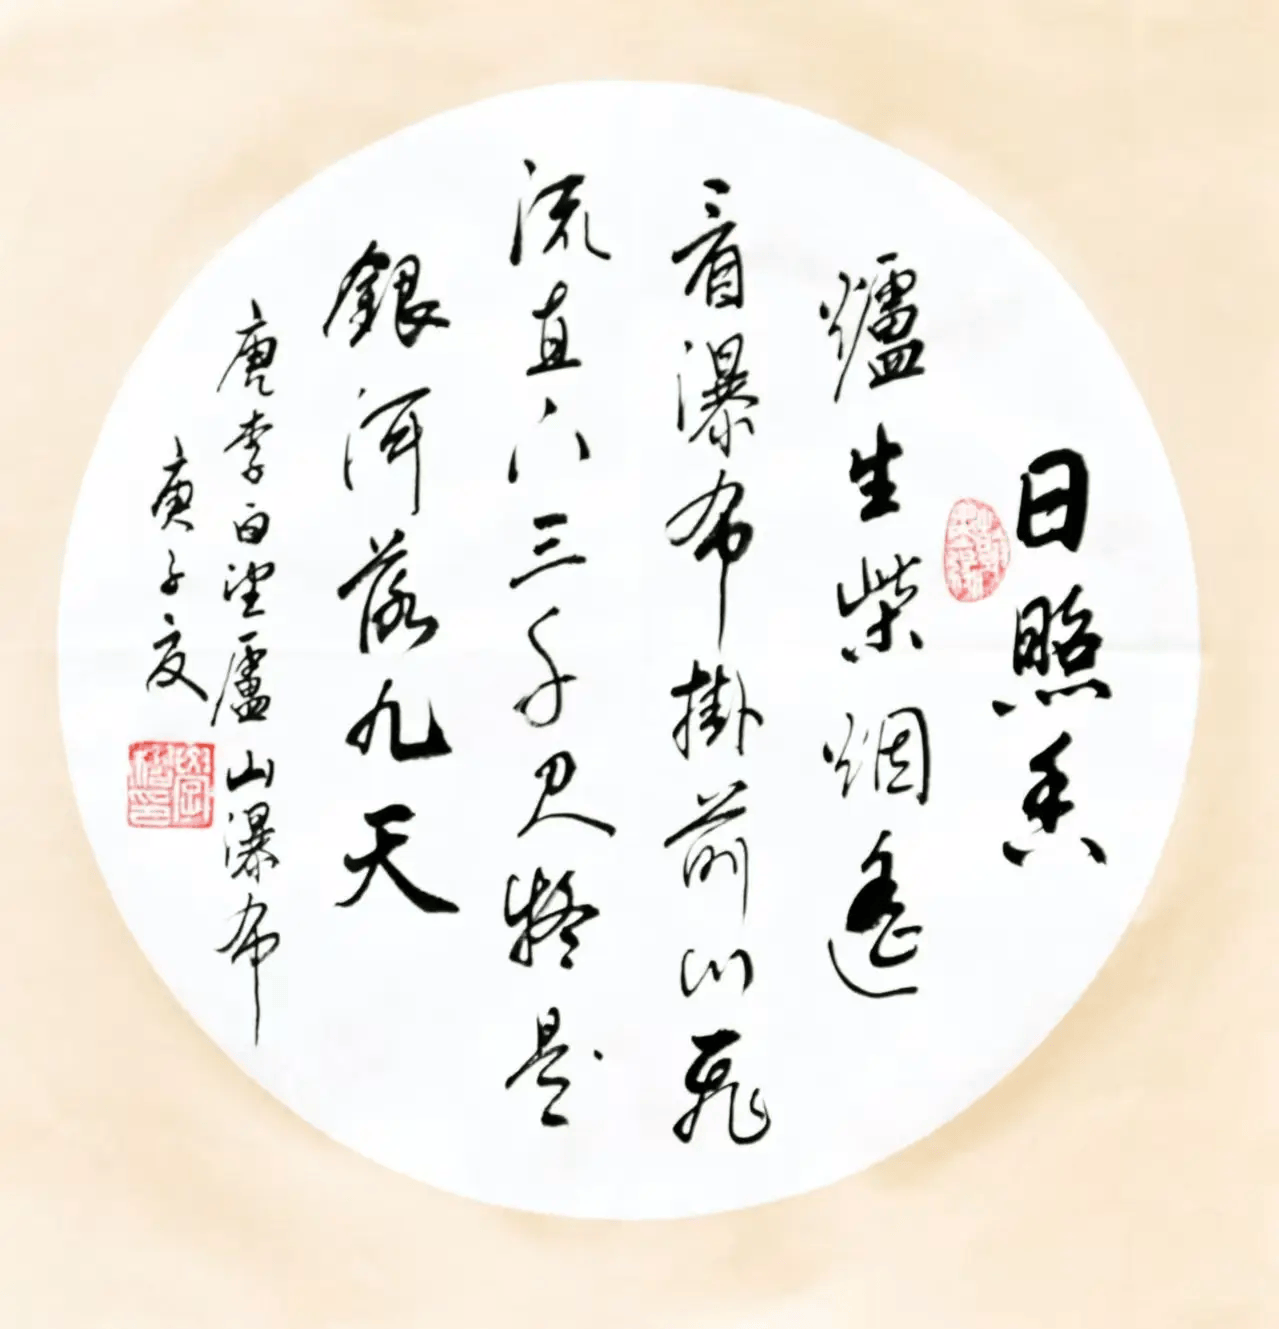 日照香
爐生紫烟遥
看瀑布掛前川飛
流直下三千尺疑是
銀河落九天
唐李白望廬山瀑布
庚子夏